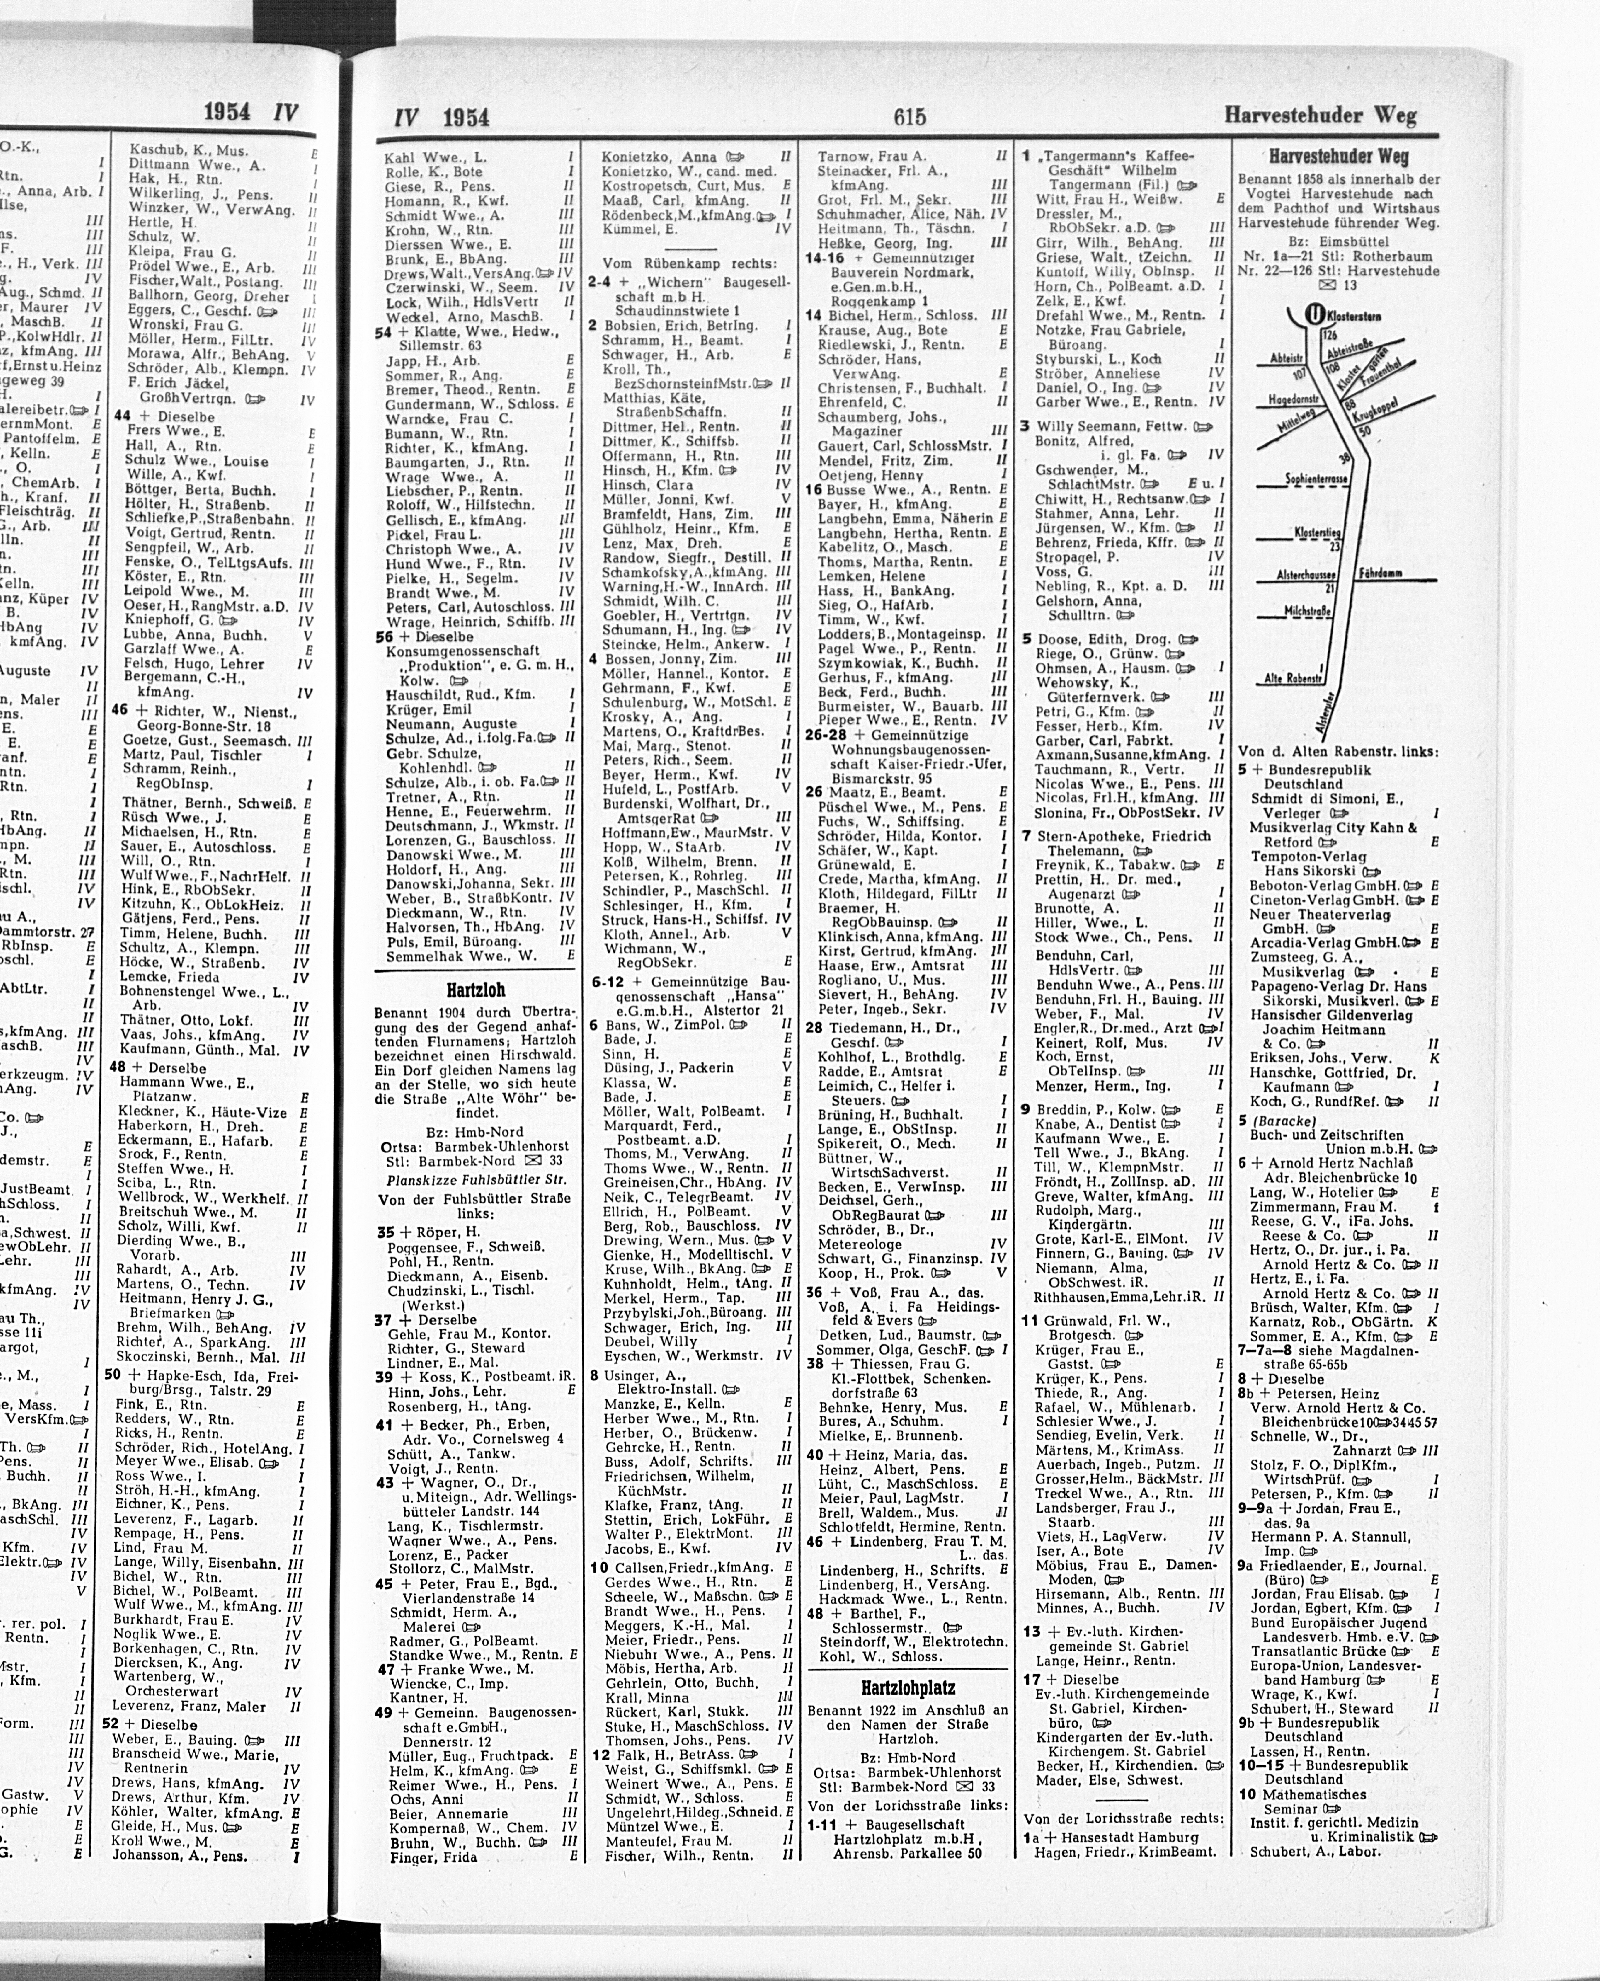 1954 IV
Kaschub, K., Mus. E
Dittmann Wwe., A. I
Hak, H., Rtn. I
Wilkerling, J., Pens. II
Winzker, W., VerwAng. II
Hertle, H. II
Schulz, W. II
Kleipa, Frau G. II
Prödel Wwe., E., Arb. III
Fischer, Walt., Postang. III
Ballhorn, Georg, Dreher I
Eggers, C., Geschf. III
Wronski, Frau G. III
Möller, Herm., FilLtr. IV
Morawa, Alfr., BehAng. V
Schröder, Alb., Klempn. IV
F. Erich Jäckel,
GroßhVertrgn. IV
44 + Dieselbe
Frers Wwe., E. E
Hall, A., Rtn. E
Schulz Wwe., Louise I
Wille, A., Kwf. I
Böttger, Berta, Buchh. I
Hölter, H., Straßenb. II
Schliefke, P., Straßenbahn. II
Voigt, Gertrud, Rentn. II
Sengpfeil, W., Arb. II
Fenske, O., TelLtgsAufs. III
Köster, E., Rtn. III
Leipold Wwe., M. III
Oeser, H., RangMstr. a.D. IV
Kniephoff, G. IV
Lubbe, Anna, Buchh. V
Garzlaff Wwe., A. E
Felsch, Hugo, Lehrer IV
Bergemann, C.-H.,
kfmAng. IV
46 + Richter, W., Nienst.,
Georg-Bonne-Str. 18
Goetze, Gust., Seemasch. III
Martz, Paul, Tischler I
Schramm, Reinh.,
RegObInsp. I
Thätner, Bernh., Schweiß. E
Rüsch Wwe., J. E
Michaelsen, H., Rtn. E
Sauer, E., Autoschloss. E
Will, O., Rtn. I
Wulf Wwe., F., NachrHelf. II
Hink, E., RbObSekr. II
Kitzuhn, K., ObLokHeiz. II
Gätjens, Ferd., Pens. II
Timm, Helene, Buchh. III
Schultz, A., Klempn. III
Höcke, W., Straßenb. IV
Lemcke, Frieda IV
Bohnenstengel Wwe., L.,
Arb. IV
Thätner, Otto, Lokf. III
Vaas, Johs., kfmAng. IV
Kaufmann, Günth., Mal. IV
48 + Derselbe
Hammann Wwe., E.,
Plätzanw. E
Kleckner, K., Häute-Vize E
Haberkorn, H., Dreh. E
Eckermann, E., Hafarb. E
Srock, F., Rentn. E
Steffen Wwe., H. I
Sciba, L., Rtn. I
Wellbrock, W., Werkhelf. II
Breitschuh Wwe., M. II
Scholz, Willi, Kwf. II
Dierding Wwe., B.,
Vorarb. III
Rahardt, A., Arb. IV
Martens, O., Techn. IV
Heitmann, Henry J. G.,
Briefmarken
Brehm, Wilh., BehAng. IV
Richter, A., SparkAng. III
Skoczinski, Bernh., Mal. III
50 + Hapke-Esch, Ida, Frei-
burg/Brsg., Talstr. 29
Fink, E., Rtn. E
Redders, W., Rtn. E
Ricks, H., Rentn. E
Schröder, Rich., HotelAng. I
Meyer Wwe., Elisab. I
Ross Wwe., I. I
Ströh, H.-H., kfmAng. I
Eichner, K., Pens. I
Leverenz, F., Lagarb. II
Rempage, H., Pens. II
Lind, Frau M. II
Lange, Willy, Eisenbahn. III
Bichel, W., Rtn. III
Bichel, W., PolBeamt. III
Wulf Wwe., M., kfmAng. III
Burkhardt, Frau E. IV
Noglik Wwe., E. IV
Borkenhagen, C., Rtn. IV
Diercksen, K., Ang. IV
Wartenberg, W.,
Orchesterwart IV
Leverenz, Franz, Maler II
52 + Dieselbe
Weber, E., Bauing. III
Branscheid Wwe., Marie,
Rentnerin IV
Drews, Hans, kfmAng. IV
Drews, Arthur, Kfm. IV
Köhler, Walter, kfmAng. E
Gleide, H., Mus. E
Kroll Wwe., M. E
Johansson, A., Pens. I
IV 1954
615
Harvestehuder Weg
Kahl Wwe., L. I
Rolle, K., Bote I
Giese, R., Pens. II
Homann, R., Kwf. II
Schmidt Wwe., A. III
Krohn, W., Rtn. III
Dierssen Wwe., E. III
Brunk, E., BbAng. III
Drews, Walt., VersAng. IV
Czerwinski, W., Seem. IV
Lock, Wilh., HdlsVertr II
Weckel, Arno, MaschB. I
54 + Klatte, Wwe., Hedw.,
Sillemstr. 63
Japp, H., Arb. E
Sommer, R., Ang. E
Bremer, Theod., Rentn. E
Gundermann, W., Schloss. E
Warncke, Frau C. I
Bumann, W., Rtn. I
Richter, K., kfmAng. I
Baumgarten, J., Rtn. II
Wrage Wwe., A. II
Liebscher, P., Rentn. II
Roloff, W., Hilfstechn. II
Gellisch, E., kfmAng. III
Pickel, Frau L. III
Christoph Wwe., A. IV
Hund Wwe., F., Rtn. IV
Pielke, H., Segelm. IV
Brandt Wwe., M. IV
Peters, Carl, Autoschloss. III
Wrage, Heinrich, Schiffb. III
56 + Dieselbe
Konsumgenossenschaft
„Produktion", e. G. m. H.,
Kolw.
Hauschildt, Rud., Kfm. I
Krüger, Emil I
Neumann, Auguste I
Schulze, Ad., i.folg.Fa. II
Gebr. Schulze,
Kohlenhdl. II
Schulze, Alb., i. ob. Fa. II
Tretner, A., Rtn. II
Henne, E., Feuerwehrm. II
Deutschmann, J., Wkmstr. II
Lorenzen, G., Bauschloss. II
Danowski Wwe., M. III
Holdorf, H., Ang. III
Danowski, Johanna, Sekr. III
Weber, B., StraßbKontr. IV
Dieckmann, W., Rtn. IV
Halvorsen, Th., HbAng. IV
Puls, Emil, Büroang. III
Semmelhak Wwe., W. E
Hartzloh
Benannt 1904 durch Übertra-
gung des der Gegend anhaf-
tenden Flurnamens; Hartzloh
bezeichnet einen Hirschwald.
Ein Dorf gleichen Namens lag
an der Stelle, wo sich heute
die Straße „Alte Wöhr" be-
findet.
Bz: Hmb-Nord
Ortsa: Barmbek-Uhlenhorst
Stl: Barmbek-Nord ✉ 33
Planskizze Fuhlsbüttler Str.
Von der Fuhlsbüttler Straße
links:
35 + Röper, H.
Poggensee, F., Schweiß.
Pohl, H., Rentn.
Dieckmann, A., Eisenb.
Chudzinski, L., Tischl.
(Werkst.)
37 + Derselbe
Gehle, Frau M., Kontor.
Richter, G., Steward
Lindner, E., Mal.
39 + Koss, K., Postbeamt. iR.
Hinn, Johs., Lehr. E
Rosenberg, H., tAng.
41 + Becker, Ph., Erben,
Adr. Vo., Cornelsweg 4
Schütt, A., Tankw.
Voigt, J., Rentn.
43 + Wagner, O., Dr.,
u. Miteign., Adr. Wellings-
bütteler Landstr. 144
Lang, K., Tischlermstr.
Wagner Wwe., A., Pens.
Lorenz, E., Packer
Stollorz, C., MalMstr.
45 + Peter, Frau E., Bgd.,
Vierlandenstraße 14
Schmidt, Herm. A.,
Malerei
Radmer, G., PolBeamt.
Standke Wwe., M., Rentn. E
47 + Franke Wwe., M.
Wiencke, C., Imp.
Kantner, H.
49 + Gemeinn. Baugenossen-
schaft e.GmbH.,
Dennerstr. 12
Müller, Eug., Fruchtpack. E
Helm, K., kfmAng. E
Reimer Wwe., H., Pens. I
Ochs, Anni II
Beier, Annemarie III
Kompernaß, W., Chem. IV
Bruhn, W., Buchh. III
Finger, Frida E
Konietzko, Anna II
Konietzko, W., cand. med.
Kostropetsch, Curt, Mus. E
Maaß, Carl, kfmAng. II
Rödenbeck, M., kfmAng. I
Kümmel, E. IV
Vom Rübenkamp rechts:
2-4 + „Wichern" Baugesell-
schaft m.b H.
Schaudinnstwiete 1
2 Bobsien, Erich, BetrIng. I
Schramm, H., Beamt. I
Schwager, H., Arb. E
Kroll, Th.,
BezSchornsteinfMstr. II
Matthias, Käte,
StraßenbSchaffn. II
Dittmer, Hel., Rentn. II
Dittmer, K., Schiffsb. II
Offermann, H., Rtn. III
Hinsch, H., Kfm. IV
Hinsch, Clara IV
Müller, Jonni, Kwf. V
Bramfeldt, Hans, Zim. III
Gühlholz, Heinr., Kfm. E
Lenz, Max, Dreh. E
Randow, Siegfr., Destill. II
Schamkofsky, A., kfmAng. III
Warning, H.-W., InnArch. III
Schmidt, Wilh. C. III
Goebler, H., Vertrtgn. IV
Schumann, H., Ing. IV
Steincke, Helm., Ankerw. I
4 Bossen, Jonny, Zim. III
Möller, Hannel., Kontor. E
Gehrmann, F., Kwf. E
Schulenburg, W., MotSchl. E
Krosky, A., Ang. I
Martens, O., KraftdrBes. I
Mai, Marg., Stenot. II
Peters, Rich., Seem. II
Beyer, Herm., Kwf. IV
Hufeld, L., PostfArb. V
Burdenski, Wolfhart, Dr.,
AmtsgerRat III
Hoffmann, Ew., MaurMstr. V
Hopp, W., StaArb. IV
Kolß, Wilhelm, Brenn. II
Petersen, K., Rohrleg. III
Schindler, P., MaschSchl. II
Schlesinger, H., Kfm. I
Struck, Hans-H., Schiffsf. IV
Kloth, Annel., Arb. V
Wichmann, W.,
RegObSekr. E
6-12 + Gemeinnützige Bau-
genossenschaft „Hansa"
e.G.m.b.H., Alstertor 21
6 Bans, W., ZimPol. II
Bade, J. E
Sinn, H. E
Düsing, J., Packerin V
Klassa, W. E
Bade, J. E
Möller, Walt, PolBeamt. I
Marquardt, Ferd.,
Postbeamt. a.D. I
Thoms, M., VerwAng. II
Thoms Wwe., W., Rentn. II
Greineisen, Chr., HbAng. IV
Neik, C., TelegrBeamt. IV
Ellrich, H., PolBeamt. V
Berg, Rob., Bauschloss. IV
Drewing, Wern., Mus. V
Gienke, H., Modelltischl. V
Kruse, Wilh., BkAng. E
Kuhnholdt, Helm., tAng. II
Merkel, Herm., Tap. III
Przybylski, Joh., Büroang. III
Schwager, Erich, Ing. III
Deubel, Willy I
Eyschen, W., Werkmstr. IV
8 Usinger, A.,
Elektro-Install.
Manzke, E., Kelln. E
Herber Wwe., M., Rtn. I
Herber, O., Brückenw. I
Gehrcke, H., Rentn. II
Buss, Adolf, Schrifts. III
Friedrichsen, Wilhelm,
KüchMstr. II
Klafke, Franz, tAng. II
Stettin, Erich, LokFühr. E
Walter P., ElektrMont. III
Jacobs, E., Kwf. IV
10 Callsen, Friedr., kfmAng. E
Gerdes Wwe., H., Rtn. E
Scheele, W., Maßschn. E
Brandt Wwe., H., Pens. I
Meggers, K.-H., Mal. I
Meier, Friedr., Pens. II
Niebuhr Wwe., A., Pens. II
Möbis, Hertha, Arb. II
Gehrlein, Otto, Buchh. I
Krall, Minna III
Rückert, Karl, Stukk. III
Stuke, H., MaschSchloss. IV
Thomsen, Johs., Pens. IV
12 Falk, H., BetrAss. I
Weist, G., Schiffsmkl. E
Weinert Wwe., A., Pens. E
Schmidt, W., Schloss. E
Ungelehrt, Hildeg., Schneid. E
Müntzel Wwe., E. I
Manteufel, Frau M. II
Fischer, Wilh., Rentn. II
Tarnow, Frau A. II
Steinacker, Frl. A.,
kfmAng. III
Grot, Frl. M., Sekr. III
Schuhmacher, Alice, Näh. IV
Heitmann, Th., Täschn. I
Heßke, Georg, Ing. III
14-16 + Gemeinnütziger
Bauverein Nordmark,
e.Gen.m.b.H.,
Roggenkamp 1
14 Bichel, Herm., Schloss. III
Krause, Aug., Bote E
Riedlewski, J., Rentn. E
Schröder, Hans,
VerwAng. E
Christensen, F., Buchhalt. I
Ehrenfeld, C. II
Schaumberg, Johs.,
Magaziner III
Gauert, Carl, SchlossMstr. I
Mendel, Fritz, Zim. II
Oetjeng, Henny I
16 Busse Wwe., A., Rentn. E
Bayer, H., kfmAng. E
Langbehn, Emma, Näherin E
Langbehn, Hertha, Rentn. E
Kabelitz, O., Masch. E
Thoms, Martha, Rentn. E
Lemken, Helene I
Hass, H., BankAng. I
Sieg, O., HafArb. I
Timm, W., Kwf. I
Lodders, B., Montageinsp. II
Pagel Wwe., P., Rentn. II
Szymkowiak, K., Buchh. II
Gerhus, F., kfmAng. III
Beck, Ferd., Buchh. III
Burmeister, W., Bauarb. III
Pieper Wwe., E., Rentn. IV
26-28 + Gemeinnützige
Wohnungsbaugenossen-
schaft Kaiser-Friedr.-Ufer,
Bismarckstr. 95
26 Maatz, E., Beamt. E
Püschel Wwe., M., Pens. E
Fuchs, W., Schiffsing. E
Schröder, Hilda, Kontor. I
Schäfer, W., Kapt. I
Grünewald, E. I
Crede, Martha, kfmAng. II
Kloth, Hildegard, FilLtr II
Braemer, H.
RegObBauinsp. II
Klinkisch, Anna, kfmAng. III
Kirst, Gertrud, kfmAng. III
Haase, Erw., Amtsrat III
Rogliano, U., Mus. III
Sievert, H., BehAng. IV
Peter, Ingeb., Sekr. IV
28 Tiedemann, H., Dr.,
Geschf. I
Kohlhof, L., Brothdlg. E
Radde, E., Amtsrat E
Leimich, C., Helfer i.
Steuers. I
Brüning, H., Buchhalt. I
Lange, E., ObStInsp. II
Spikereit, O., Mech. II
Büttner, W.,
WirtschSachverst. II
Becken, E., VerwInsp. III
Deichsel, Gerh.,
ObRegBaurat III
Schröder, B., Dr.,
Metereologe IV
Schwart, G., Finanzinsp. IV
Koop, H., Prok. V
36 + Voß, Frau A., das.
Voß, A., i. Fa Heidings-
feld & Evers
Detken, Lud., Baumstr.
Sommer, Olga, GeschF. I
38 + Thiessen, Frau G.
Kl.-Flottbek, Schenken-
dorfstraße 63
Behnke, Henry, Mus. E
Bures, A., Schuhm. I
Mielke, E., Brunnenb.
40 + Heinz, Maria, das.
Heinz, Albert, Pens. E
Lüht, C., MaschSchloss. E
Meier, Paul, LagMstr. I
Brell, Waldem., Mus. II
Schlotfeldt, Hermine, Rentn.
46 + Lindenberg, Frau T. M.
L., das.
Lindenberg, H., Schrifts. E
Lindenberg, H., VersAng.
Hackmack Wwe., L., Rentn.
48 + Barthel, F.,
Schlossermstr.
Steindorff, W., Elektrotechn.
Kohl, W., Schloss.
Hartzlohplatz
Benannt 1922 im Anschluß an
den Namen der Straße
Hartzloh.
Bz: Hmb-Nord
Ortsa: Barmbek-Uhlenhorst
Stl: Barmbek-Nord ✉ 33
Von der Lorichsstraße links:
1-11 + Baugesellschaft
Hartzlohplatz m.b.H,
Ahrensb. Parkallee 50
1 „Tangermann's Kaffee-
Geschäft" Wilhelm
Tangermann (Fil.)
Witt, Frau H., Weißw. E
Dressler, M.,
RbObSekr. a.D. III
Girr, Wilh., BehAng. III
Griese, Walt., tZeichn. I
Kuntoff, Willy, ObInsp. II
Horn, Ch., PolBeamt. a.D. I
Zelk, E., Kwf. I
Drefahl Wwe., M., Rentn. I
Notzke, Frau Gabriele,
Büroang. I
Styburski, L., Koch II
Ströber, Anneliese IV
Daniel, O., Ing. IV
Garber Wwe., E., Rentn. IV
3 Willy Seemann, Fettw.
Bonitz, Alfred,
i. gl. Fa. IV
Gschwender, M.,
SchlachtMstr. E u. I
Chiwitt, H., Rechtsanw. I
Stahmer, Anna, Lehr. II
Jürgensen, W., Kfm. II
Behrenz, Frieda, Kffr. II
Stropagel, P. IV
Voss, G. III
Nebling, R., Kpt. a. D. III
Gelshorn, Anna,
Schulltrn.
5 Doose, Edith, Drog.
Riege, O., Grünw.
Ohmsen, A., Hausm. I
Wehowsky, K.,
Güterfernverk. III
Petri, G., Kfm. II
Fesser, Herb., Kfm. IV
Garber, Carl, Fabrkt. I
Axmann, Susanne, kfmAng. I
Tauchmann, R., Vertr. II
Nicolas Wwe., E., Pens. III
Nicolas, Frl. H., kfmAng. III
Slonina, Fr., ObPostSekr. IV
7 Stern-Apotheke, Friedrich
Thelemann,
Freynik, K., Tabakw. E
Prettin, H. Dr. med.,
Augenarzt I
Brunotte, A. II
Hiller, Wwe., L. II
Stock Wwe., Ch., Pens. II
Benduhn, Carl,
HdlsVertr. III
Benduhn Wwe., A., Pens. III
Benduhn, Frl. H., Bauing. III
Weber, F., Mal. IV
Engler, R., Dr.med., Arzt I
Keinert, Rolf, Mus. IV
Koch, Ernst,
ObTelInsp. III
Menzer, Herm., Ing. I
9 Breddin, P., Kolw. E
Knabe, A., Dentist I
Kaufmann Wwe., E. I
Tell Wwe., J., BkAng. I
Till, W., KlempnMstr. II
Fröndt, H., ZollInsp. aD. III
Greve, Walter, kfmAng. III
Rudolph, Marg.,
Kindergärtn. III
Grote, Karl-E., ElMont. IV
Finnern, G., Bauing. IV
Niemann, Alma,
ObSchwest. iR. II
Rithhausen, Emma, Lehr. iR. II
11 Grünwald, Frl. W.,
Brotgesch.
Krüger, Frau E.,
Gastst. E
Krüger, K., Pens. I
Thiede, R., Ang. I
Rafael, W., Mühlenarb. I
Schlesier Wwe., J. I
Sendig, Evelin, Verk. II
Märtens, M., KrimAss. II
Auerbach, Ingeb., Putzm. II
Grosser, Helm., BäckMstr. III
Treckel Wwe., A., Rtn. III
Landsberger, Frau J.,
Staarb. III
Viets, H., LagVerw. IV
Iser, A., Bote IV
Möbius, Frau E., Damen-
Moden,
Hirsemann, Alb., Rentn. III
Minnes, A., Buchh. IV
13 + Ev.-luth. Kirchen-
gemeinde St. Gabriel
Lange, Heinr., Rentn.
17 + Dieselbe
Ev.-luth. Kirchengemeinde
St. Gabriel, Kirchen-
büro,
Kindergarten der Ev.-luth.
Kirchengem. St. Gabriel
Becker, H., Kirchendien.
Mader, Else, Schwest.
Von der Lorichsstraße rechts:
1a + Hansestadt Hamburg
Hagen, Friedr., KrimBeamt.
Harvestehuder Weg
Benannt 1858 als innerhalb der
Vogtei Harvestehude nach
dem Pachthof und Wirtshaus
Harvestehude führender Weg.
Bz: Eimsbüttel
Nr. 1a—21 Stl: Rotherbaum
Nr. 22—126 Stl: Harvestehude
✉ 13
U Klosterstern
126
Abteistr
Abteistraße
107
108
Kloster garten
Frauenthal
Hagedornstr
88
Mittelweg
Krugkoppel
50
38
Sophienterrasse
Klosterstieg
23
Alsterchaussee
Fährdamm
21
Milchstraße
1
Alte Rabenstr
Alsterufer
Von d. Alten Rabenstr. links:
5 + Bundesrepublik
Deutschland
Schmidt di Simoni, E.,
Verleger I
Musikverlag City Kahn &
Retford E
Tempoton-Verlag
Hans Sikorski
Beboton-Verlag GmbH. E
Cineton-Verlag GmbH. E
Neuer Theaterverlag
GmbH. E
Arcadia-Verlag GmbH. E
Zumsteeg, G. A.,
Musikverlag E
Papageno-Verlag Dr. Hans
Sikorski, Musikverl. E
Hansischer Gildenverlag
Joachim Heitmann
& Co. II
Eriksen, Johs., Verw. K
Hanschke, Gottfried, Dr.
Kaufmann I
Koch, G., RundfRef. II
5 (Baracke)
Buch- und Zeitschriften
Union m.b.H.
6 + Arnold Hertz Nachlaß
Adr. Bleichenbrücke 10
Lang, W., Hotelier E
Zimmermann, Frau M. I
Reese, G. V., iFa. Johs.
Reese & Co. II
Hertz, O., Dr. jur., i. Fa.
Arnold Hertz & Co. II
Hertz, E., i. Fa.
Arnold Hertz & Co. II
Brüsch, Walter, Kfm. I
Karnatz, Rob., ObGärtn. K
Sommer, E. A., Kfm. E
7—7a—8 siehe Magdalnen-
straße 65-65b
8 + Dieselbe
8b + Petersen, Heinz
Verw. Arnold Hertz & Co.
Bleichenbrücke 10 34 45 57
Schnelle, W., Dr.,
Zahnarzt III
Stolz, F. O., DiplKfm.,
WirtschPrüf. I
Petersen, P., Kfm. II
9—9a + Jordan, Frau E.,
das. 9a
Hermann P. A. Stannull,
Imp.
9a Friedlaender, E., Journal.
(Büro) E
Jordan, Frau Elisab. I
Jordan, Egbert, Kfm. I
Bund Europäischer Jugend
Landesverb. Hmb. e.V.
Transatlantic Brücke E
Europa-Union, Landesver-
band Hamburg E
Wrage, K., Kwf. I
Schubert, H., Steward II
9b + Bundesrepublik
Deutschland
Lassen, H., Rentn.
10—15 + Bundesrepublik
Deutschland
10 Mathematisches
Seminar
Instit. f. gerichtl. Medizin
u. Kriminalistik
Schubert, A., Labor.